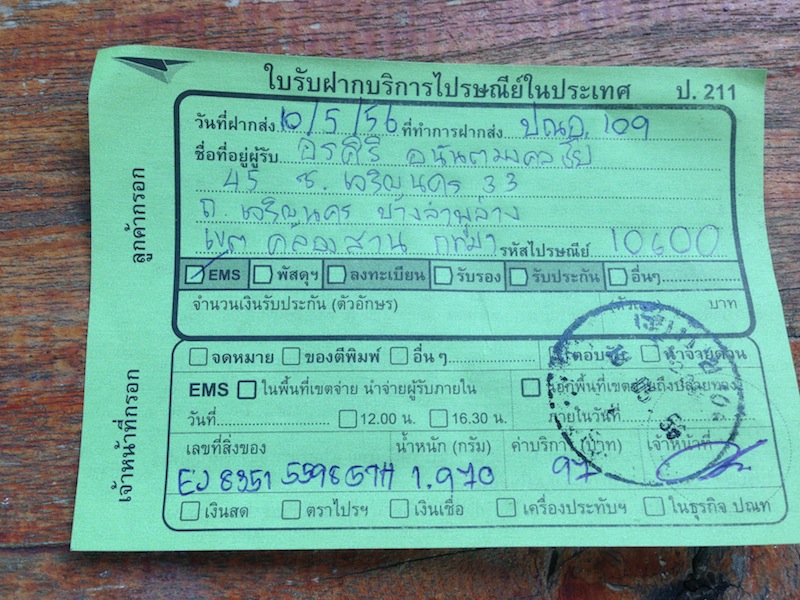 ใบรับฝากบริการไปรษณีย์ในประเทศ ป. 211
วันที่ฝากส่ง 10/5/56 ที่ทำการฝากส่ง ปณอ. 109
ชื่อที่อยู่ผู้รับ อรศิริ อนันตมงคลชัย
45 ซ. เจริญนคร 33
ถ. เจริญนคร บางลำพูล่าง
เขต คลองสาน กทม. รหัสไปรษณีย์ 10600
EMS พัสดุฯ ลงทะเบียน รับรอง รับประกัน อื่นๆ
จำนวนเงินรับประกัน (ตัวอักษร) (ตัวเลข) บาท
ลูกค้ากรอก
จดหมาย ของตีพิมพ์ อื่น ๆ ตอบรับ นำจ่ายด่วน
EMS ในพื้นที่เขตจ่าย นำจ่ายผู้รับภายใน นอกพื้นที่เขตจ่ายถึงปลายทาง
วันที่ 12.00 น. 16.30 น. ภายในวันที่
เลขที่สิ่งของ น้ำหนัก (กรัม) ค่าบริการ (บาท) เจ้าหน้าที่
EJ 8351 5598 5TH 1.970 97
เงินสด ตราไปรฯ เงินเชื่อ เครื่องประทับฯ ในธุรกิจ ปณท
เจ้าหน้าที่กรอก